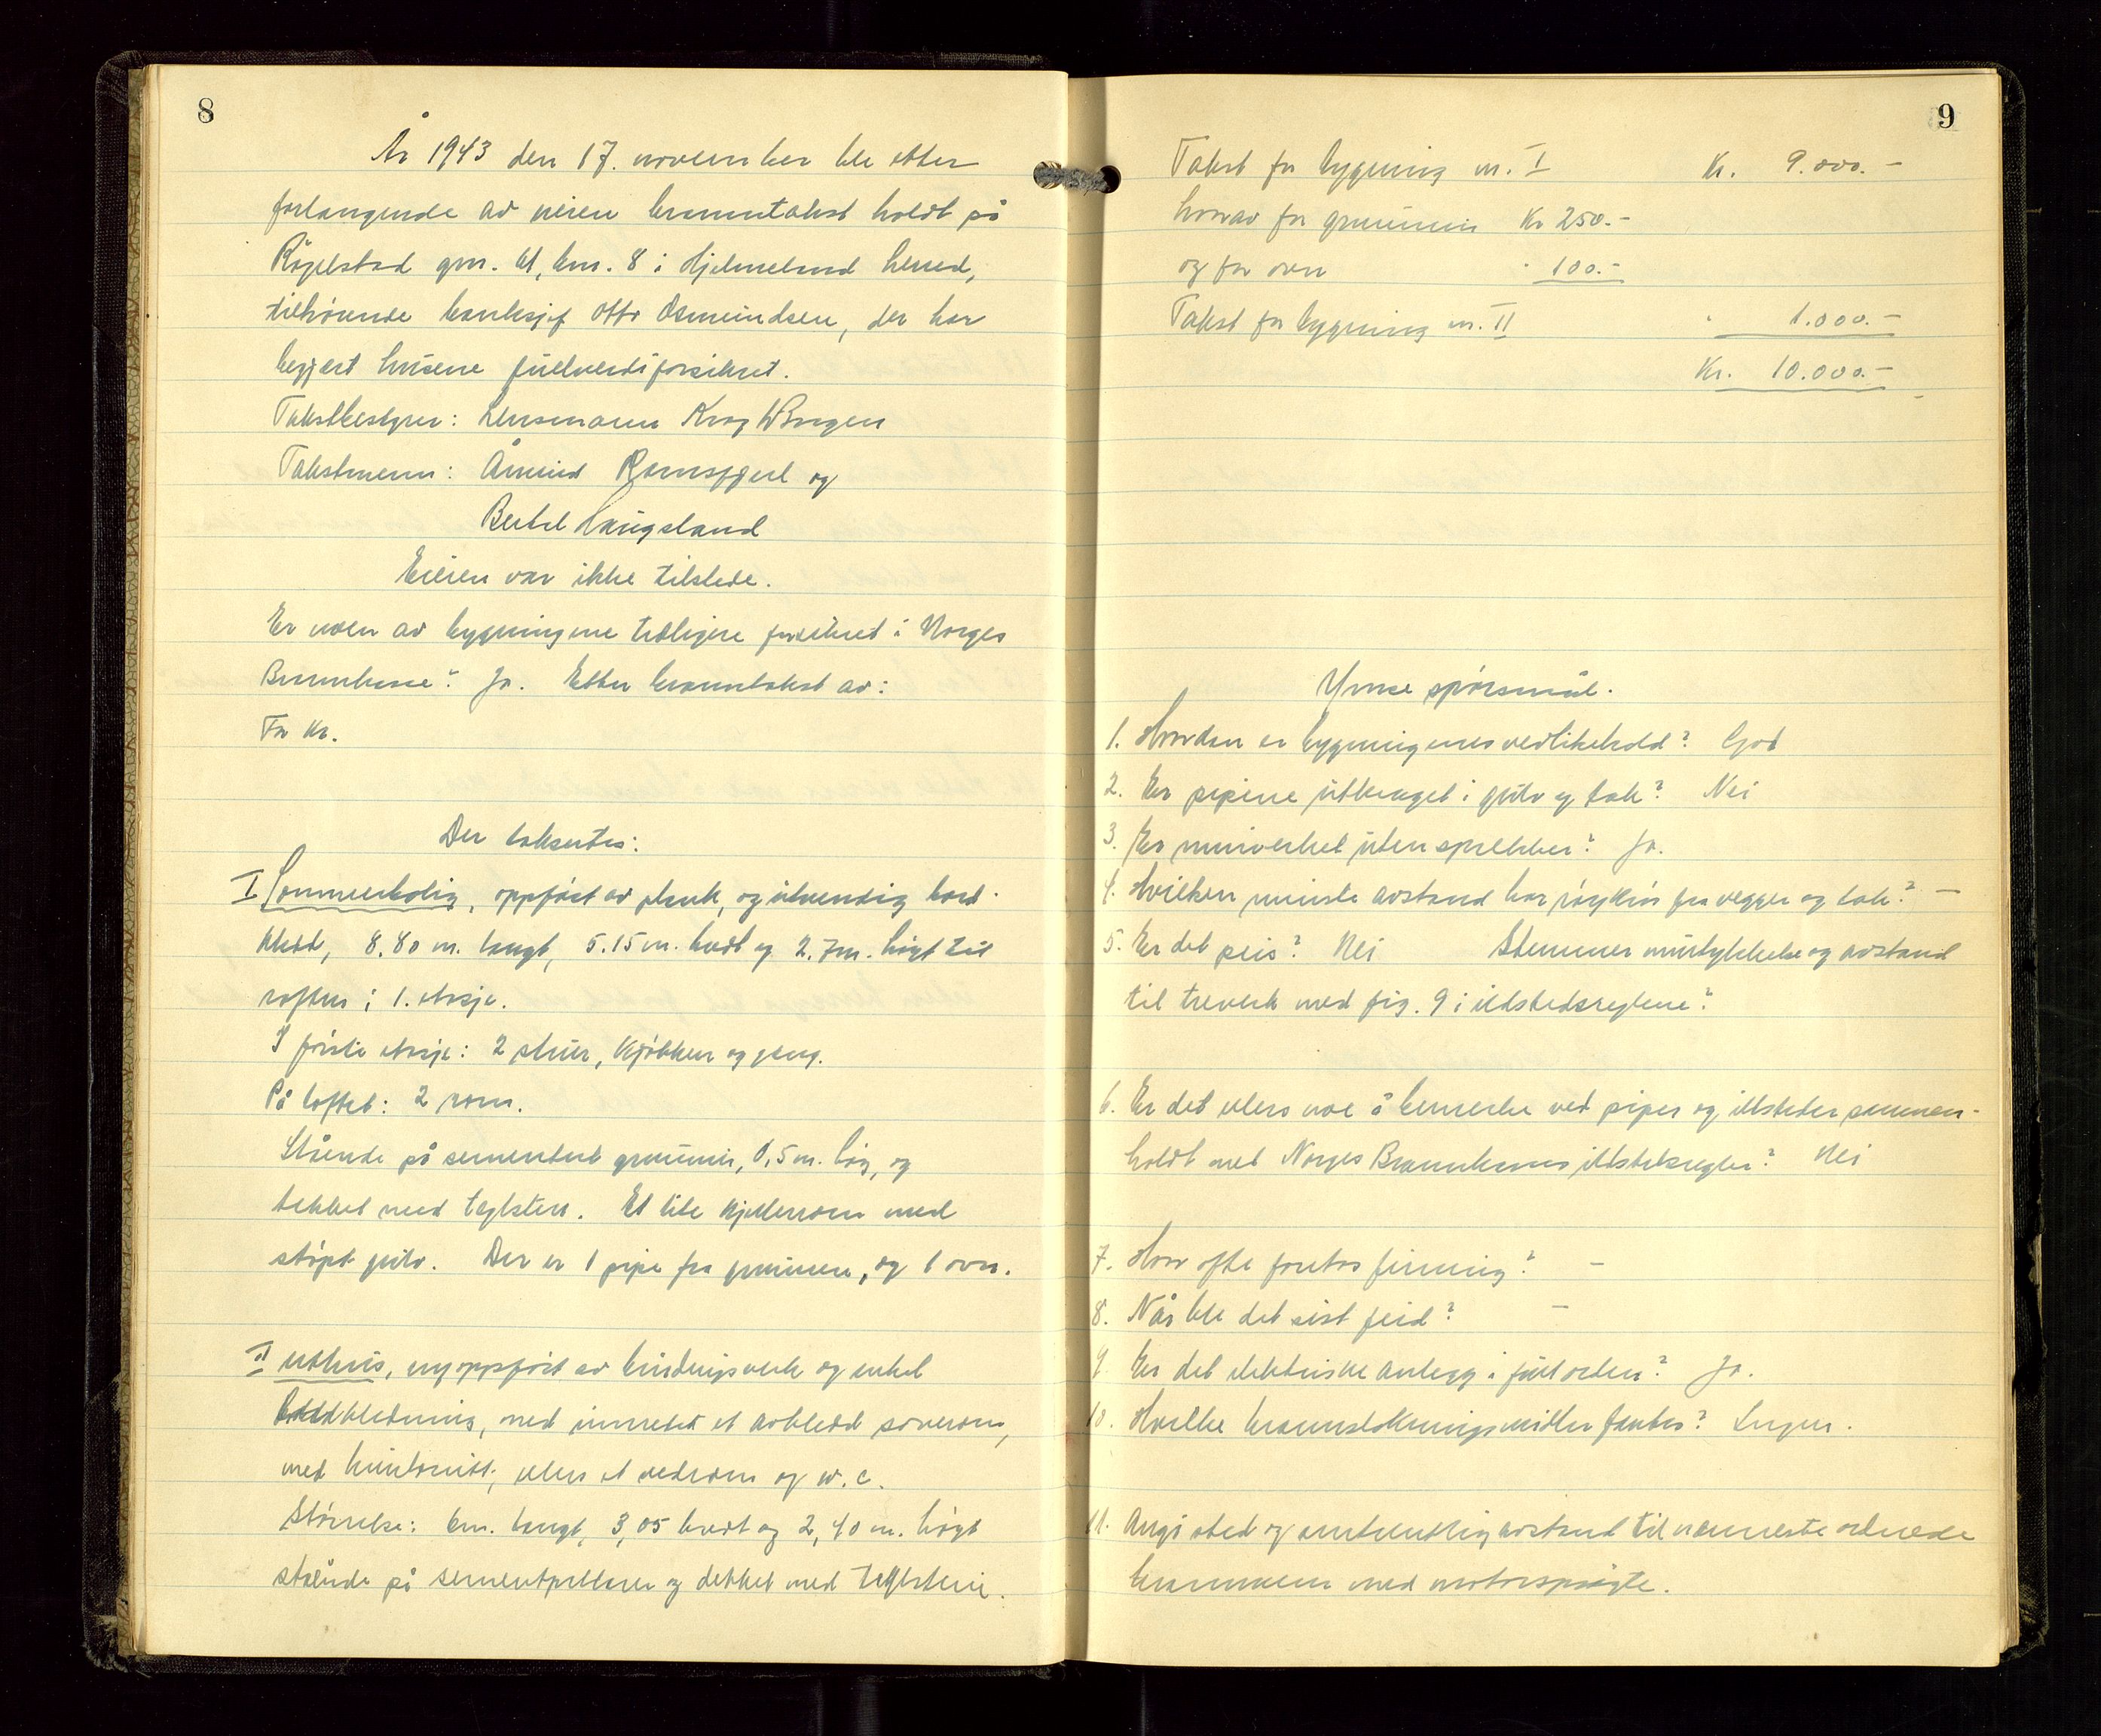 8
År 1943 den 17. november ble etter
forlangende av eieren branntakst holdt på
Røgelstad gnr. 61, bnr. 8 i Hjelmeland herred,
tilhørende banksjef Otto Osmundsen, der har
begjært husene fullverdiforsikret.
Takstbestyrer: Lensmann Krag W Borgen
Takstmenn: Åmund Ramsfjell og
Bertel Haugsland
Eieren var ikke tilstede.
Er noen av bygningene tidligere forsikret i Norges
Brannkasse? Ja. Etter branntakst av:
For Kr.
Der taksertes:
I Sommerbolig, oppført av plank, og utvendig bord-
kledd, 8.80 m. langt, 5.15 m. bredt og 2.7 m. høgt til
raften i 1. etasje.
I første etasje: 2 stuer, kjøkken og gang.
På loftet: 2 rom.
Stående på sementert grunnmur, 0,5 m. høg, og
tekket med teglsten. Et lite kjellerrom med
støpt gulv. Der er 1 pipe fra grunnen, og 1 ovn.
II Uthus, ny oppført av bindingsverk og enkel
bordkledning, med innredet et avkledd soverom,
med huntonitt, ellers et vedrom og w.c.
Størrelse: 6 m. langt, 3,05 bredt og 2,40 m. høgt
stående på sementpillarer og dekket med teglsten.
9
Takst for bygning nr. I Kr. 9.000.-
hvorav for grunnmur Kr 250.-
og for ovn " 100.-
Takst for bygning nr. II " 1.000.-
Kr. 10.000.-
Ymse spørsmål.
1. Hvordan er bygningenes vedlikehold? God
2. Er pipene utkraget i gulv og tak? Nei
3. Er murverket uten sprekker? Ja.
4. Hvilken minste avstand har røykrør fra vegger og tak? -
5. Er det peis? Nei Stemmer murtykkelse og avstand
til treverk med fig. 9 i ildstedsreglene?
6. Er det ellers noe å bemerke ved piper og ildsteder sammen-
holdt med Norges Brannkasses ildstedsregler? Nei
7. Hvor ofte foretas feiing? -
8. Når ble det sist feid? -
9. Er det elektriske anlegg i full orden? Ja.
10. Hvilke brannslokningsmidler fantes? Ingen.
11. Angi sted og omtrentlig avstand til nærmeste ordnede
brannvern med motorsprøyte.